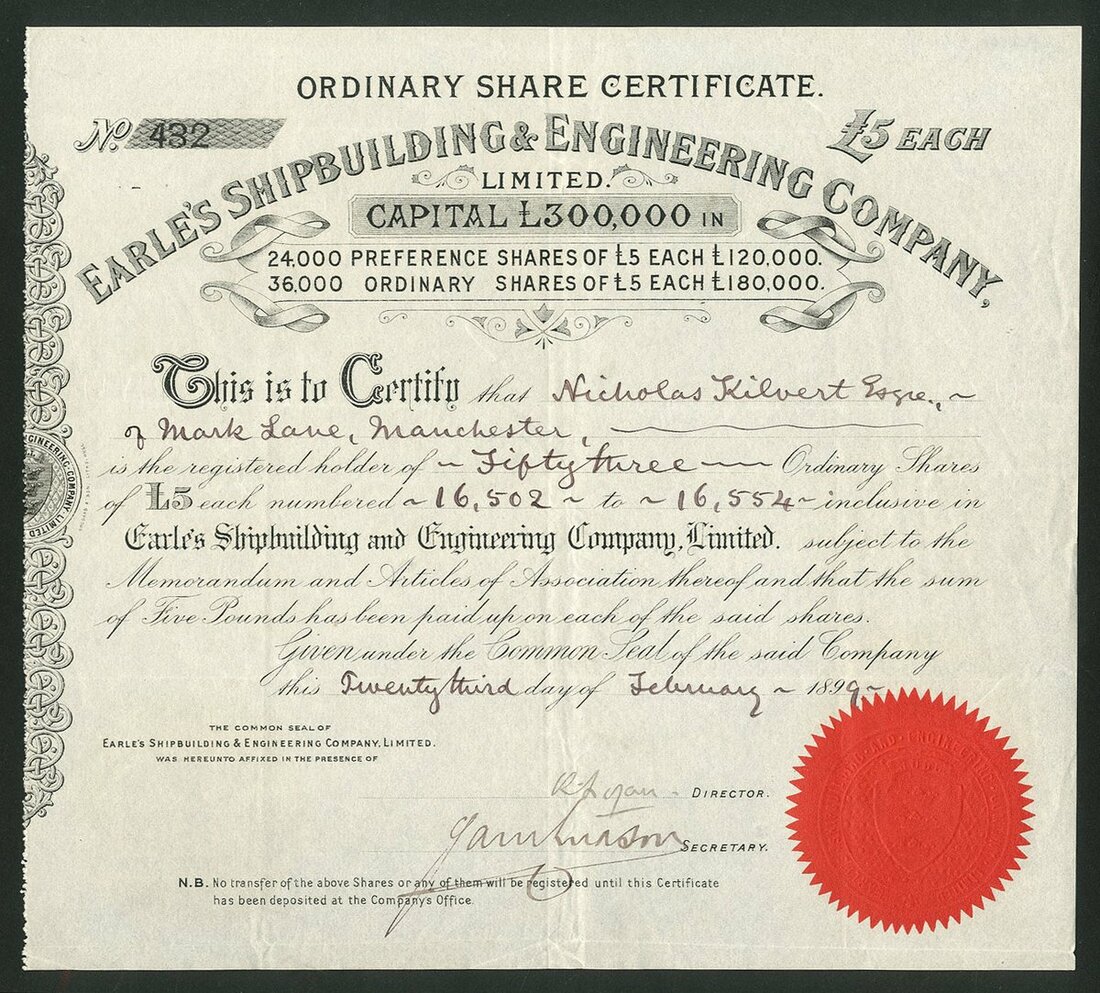 ORDINARY SHARE CERTIFICATE.
No. 432
£5 EACH
EARLE'S SHIPBUILDING & ENGINEERING COMPANY,
LIMITED.
CAPITAL £300,000 IN
24,000 PREFERENCE SHARES OF £5 EACH £120,000.
36,000 ORDINARY SHARES OF £5 EACH £180,000.
This is to Certify that Nicholas Kilvert Esqre., ~
of Mark Lane, Manchester,
is the registered holder of ~ Fifty three ~ Ordinary Shares
of £5 each numbered ~ 16,502 ~ to ~ 16,554 ~ inclusive in
Earle's Shipbuilding and Engineering Company, Limited. subject to the
Memorandum and Articles of Association thereof and that the sum
of Five Pounds has been paid up on each of the said shares.
Given under the Common Seal of the said Company
this Twenty third day of February ~ 1899 ~
THE COMMON SEAL OF
EARLE'S SHIPBUILDING & ENGINEERING COMPANY, LIMITED.
WAS HEREUNTO AFFIXED IN THE PRESENCE OF
DIRECTOR.
SECRETARY.
N.B. No transfer of the above Shares or any of them will be registered until this Certificate
has been deposited at the Company's Office.
ENGINEERING COMPANY LIMITED